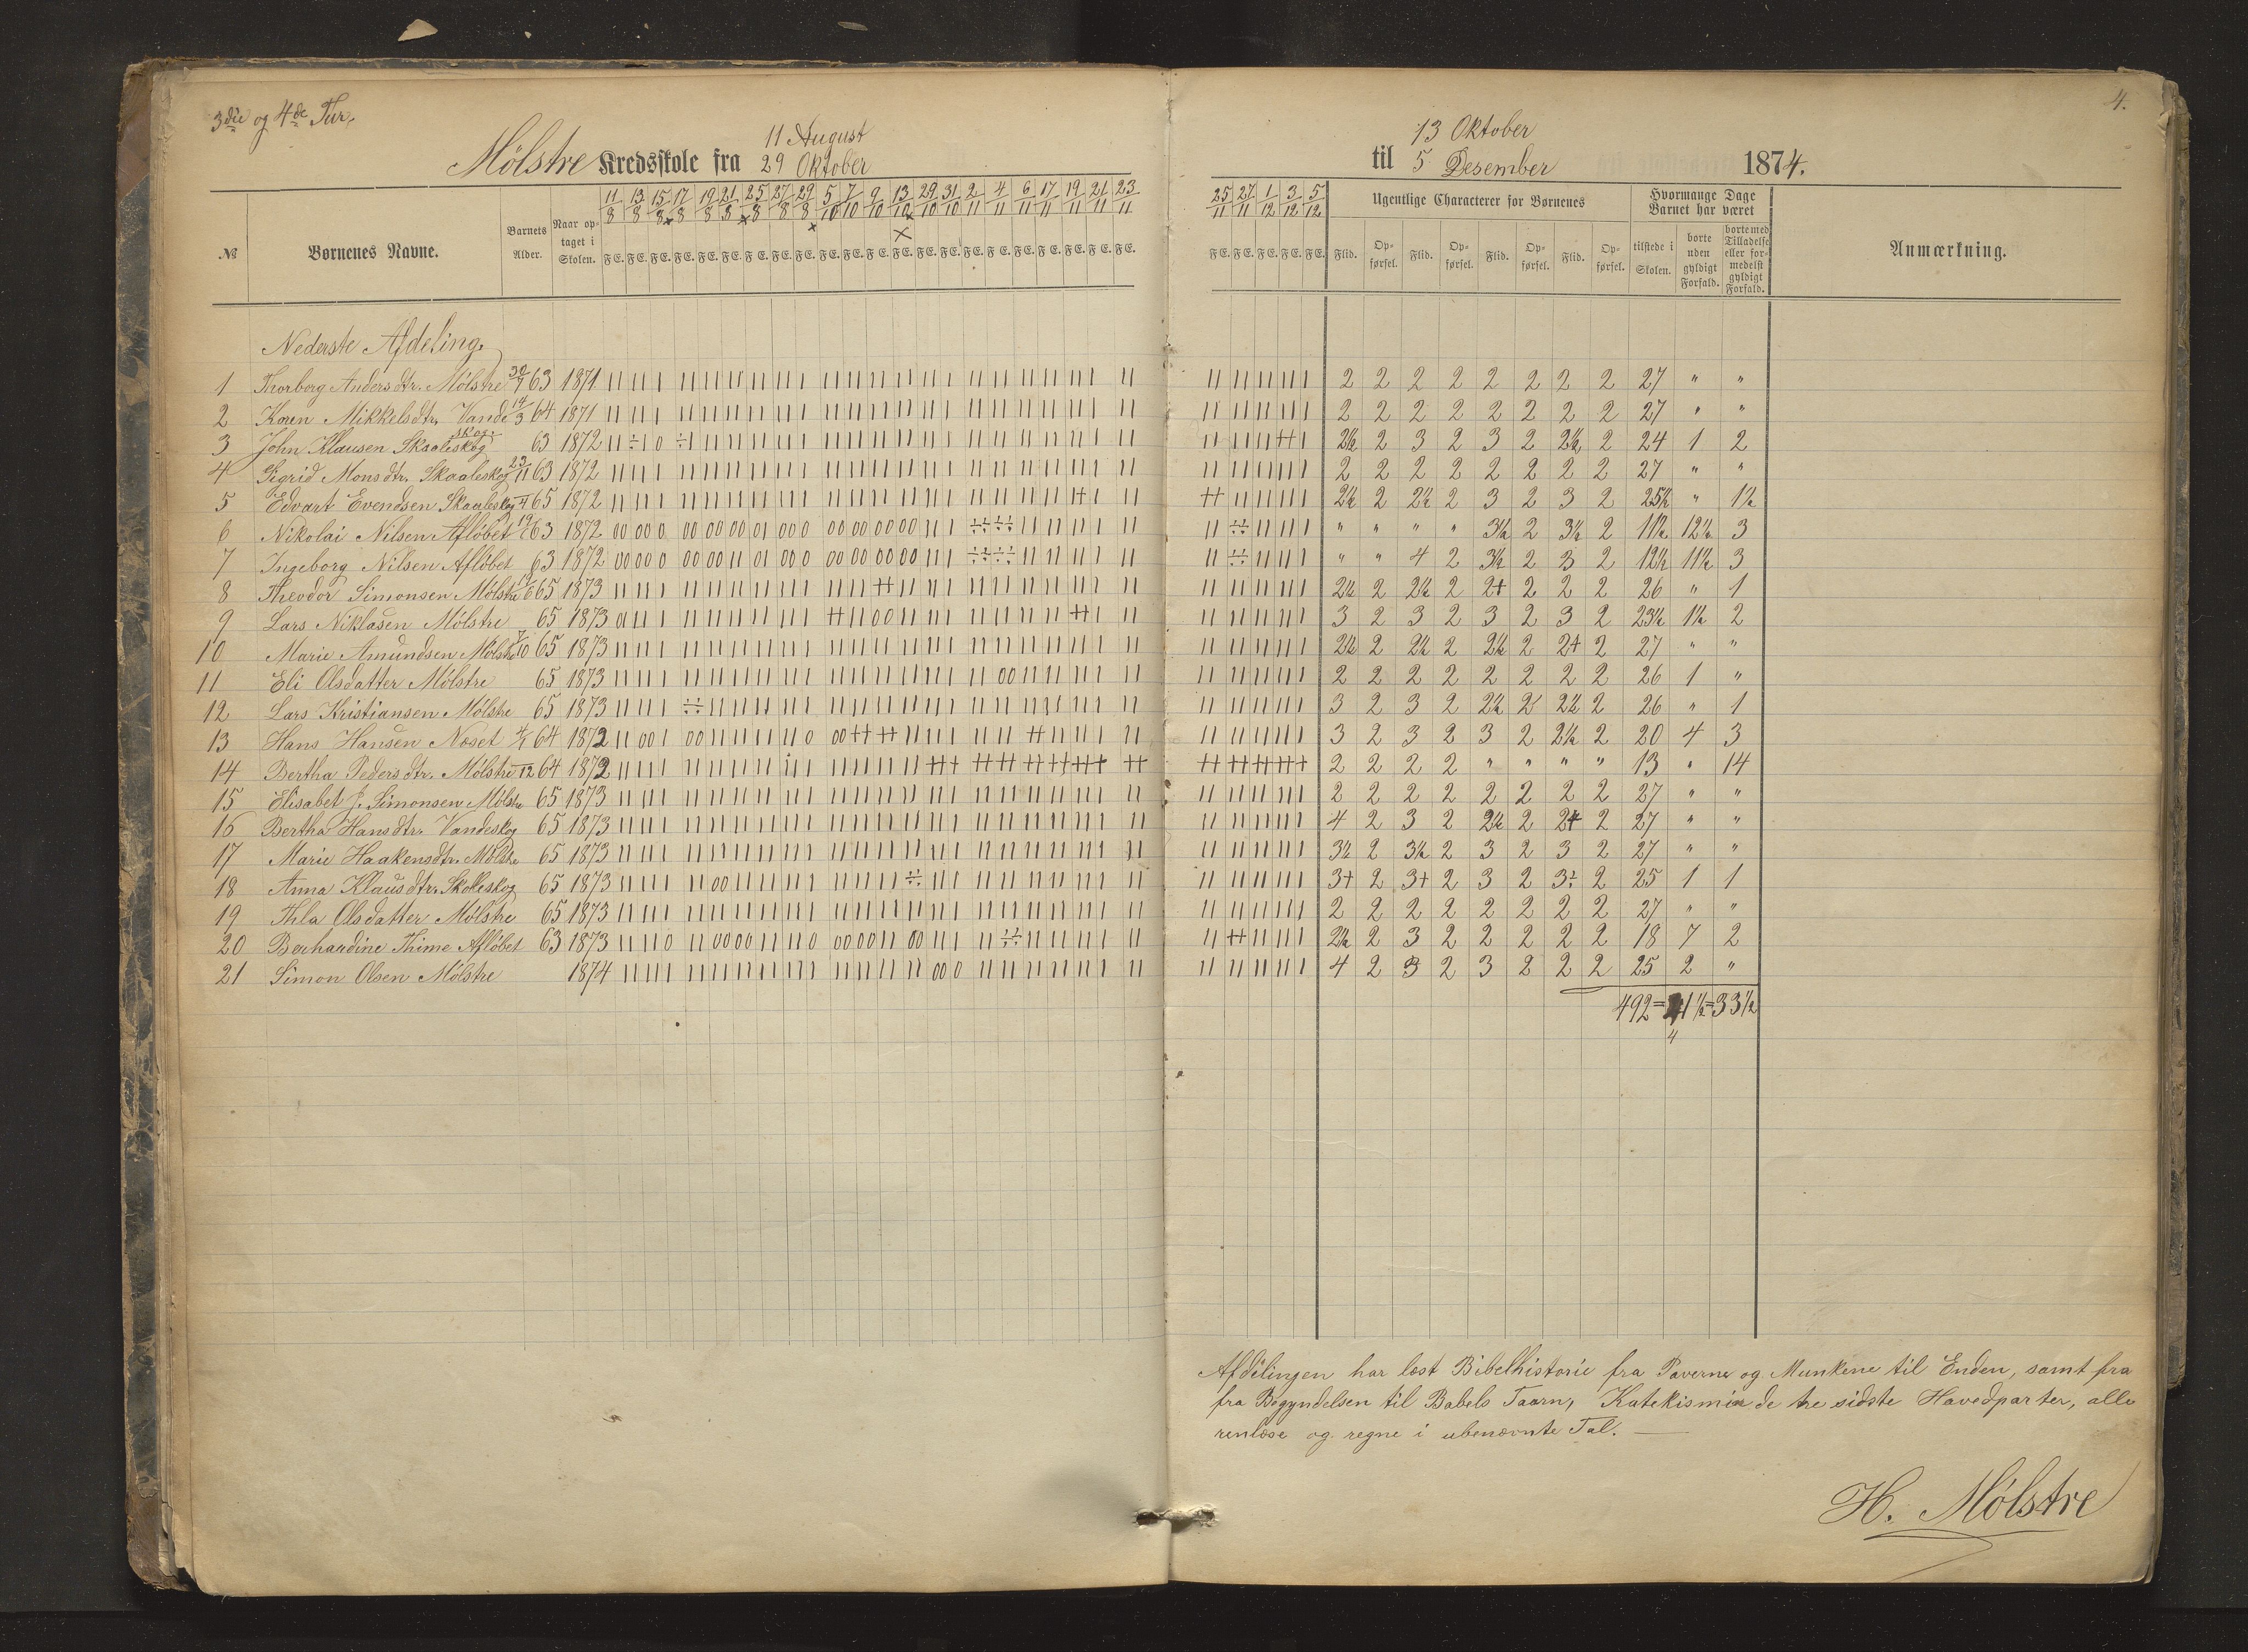 3die og 4de Tur.
4.
11 August
13 Oktober
Mølstre Kredsskole fra 29 Oktober til 5 Desember 1874.
№ Børnenes Navne. Barnets Alder. Naar optaget i Skolen.
11/8 13/8 15/8 17/8 19/8 21/8 25/8 27/8 29/8 5/10 7/10 9/10 13/10 29/10 31/10 2/11 4/11 6/11 17/11 19/11 21/11 23/11
25/11 27/11 1/12 3/12 5/12
F E. F E. F E. F E. F E. F E. F E. F E. F E. F E. F E. F E. F E. F E. F E. F E. F E. F E. F E. F E. F E. F E.
F E. F E. F E. F E. F E.
Ugentlige Characterer for Børnenes
Flid. Opførsel. Flid. Opførsel. Flid. Opførsel. Flid. Opførsel.
Hvormange Dage Barnet har været
tilstede i Skolen. borte uden gyldigt Forfald. borte med Tilladelse eller formedelst gyldigt Forfald.
Anmærkning.
Nederste Afdeling.
1 Thorborg Andersdtr. Mølstre 30/7 63 1871 2 2 2 2 2 2 2 2 27 " "
2 Karen Mikkelsdtr. Vandeskog 14/3 64 1871 2 2 2 2 2 2 2 2 27 " "
3 John Klausen Skaaleskog 63 1872 2½ 2 3 2 3 2 2½ 2 24 1 2
4 Sigrid Monsdtr. Skaaleskog 23/11 63 1872 2 2 2 2 2 2 2 2 27 " "
5 Edvart Evendsen Skaaleskog 65 1872 2½ 2 2½ 2 3 2 3 2 25½ " 1½
6 Nikolai Nilsen Afløbet 63 1872 " " " " 3½ 2 3½ 2 11½ 12½ 3
7 Ingeborg Nilsen Afløbet 63 1872 " " 4 2 3½ 2 3 2 12½ 11½ 3
8 Theodor Simonsen Mølstre 65 1873 2½ 2 2½ 2 2+ 2 2 2 26 " 1
9 Lars Niklasen Mølstre 65 1873 3 2 3 2 3 2 3 2 23½ 1½ 2
10 Marie Amundsen Mølstre 65 1873 2½ 2 2½ 2 2½ 2 2+ 2 27 " "
11 Eli Olsdatter Mølstre 65 1873 2 2 2 2 2 2 2 2 26 1 "
12 Lars Kristiansen Mølstre 65 1873 3 2 3 2 2½ 2 2½ 2 26 " 1
13 Hans Hansen Noset 64 1872 3 2 3 2 3 2 2½ 2 20 4 3
14 Bertha Pedersdtr. Mølstre 64 1872 2 2 2 2 " " " " 13 " 14
15 Elisabet J. Simonsen Mølstre 65 1873 2 2 2 2 2 2 2 2 27 " "
16 Bertha Hansdtr. Vandeskog 65 1873 4 2 3 2 2½ 2 2+ 2 27 " "
17 Marie Haakensdtr. Mølstre 65 1873 3½ 2 3½ 2 3 2 3 2 27 " "
18 Anna Klausdtr. Skolleskog 65 1873 3+ 2 3+ 2 3 2 3÷ 2 25 1 1
19 Thla Olsdatter Mølstre 65 1873 2 2 2 2 2 2 2 2 27 " "
20 Berhardine Thime Afløbet 63 1873 2½ 2 3 2 2 2 2 2 18 7 2
21 Simon Olsen Mølstre 1874 4 2 3 2 3 2 2 2 25 2 "
492=41½=33½
4
Afdelingen har læst Bibelhistorie fra Paverne og Munkene til Enden, samt fra
fra Begyndelsen til Babels Taarn, Katekismi de tre sidste Hovedparter, alle
renlæse og regne i ubenævnte Tal. —
H. Mølstre